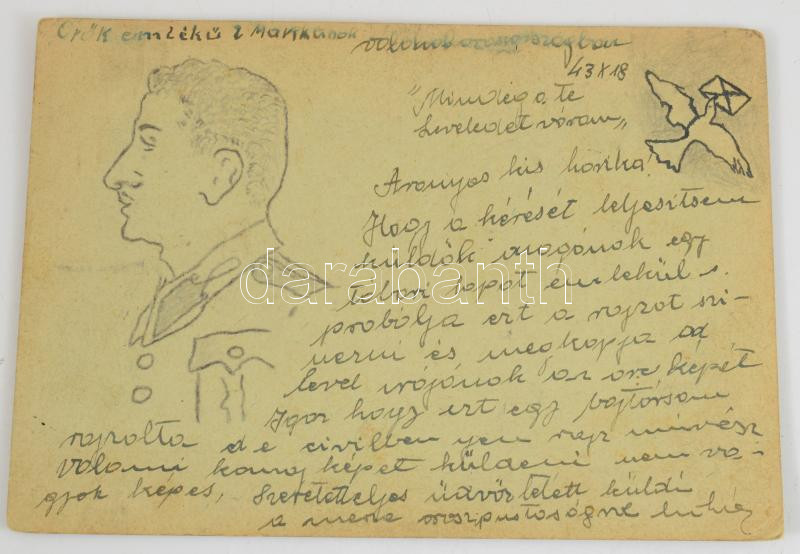 Örök emlékü 2 Mariskának
valahol oroszországban
43 X 18
"Mindég a te
leveledet várom"
Aranyos kis
Hogy a kérését teljesitsem
küldök magának egy
tábori lapot emlékül s.
probálja ezt a rajzot szi-
nezni és megkapja a
level irójának az arc képét
Igaz hogy ezt egy bajtársam
rajzolta de civilben ijen rajz müvész
valami képet küldeni nem va-
gyok képes, Szeretetteljes üdvözletett küldi
a messze
darabanth